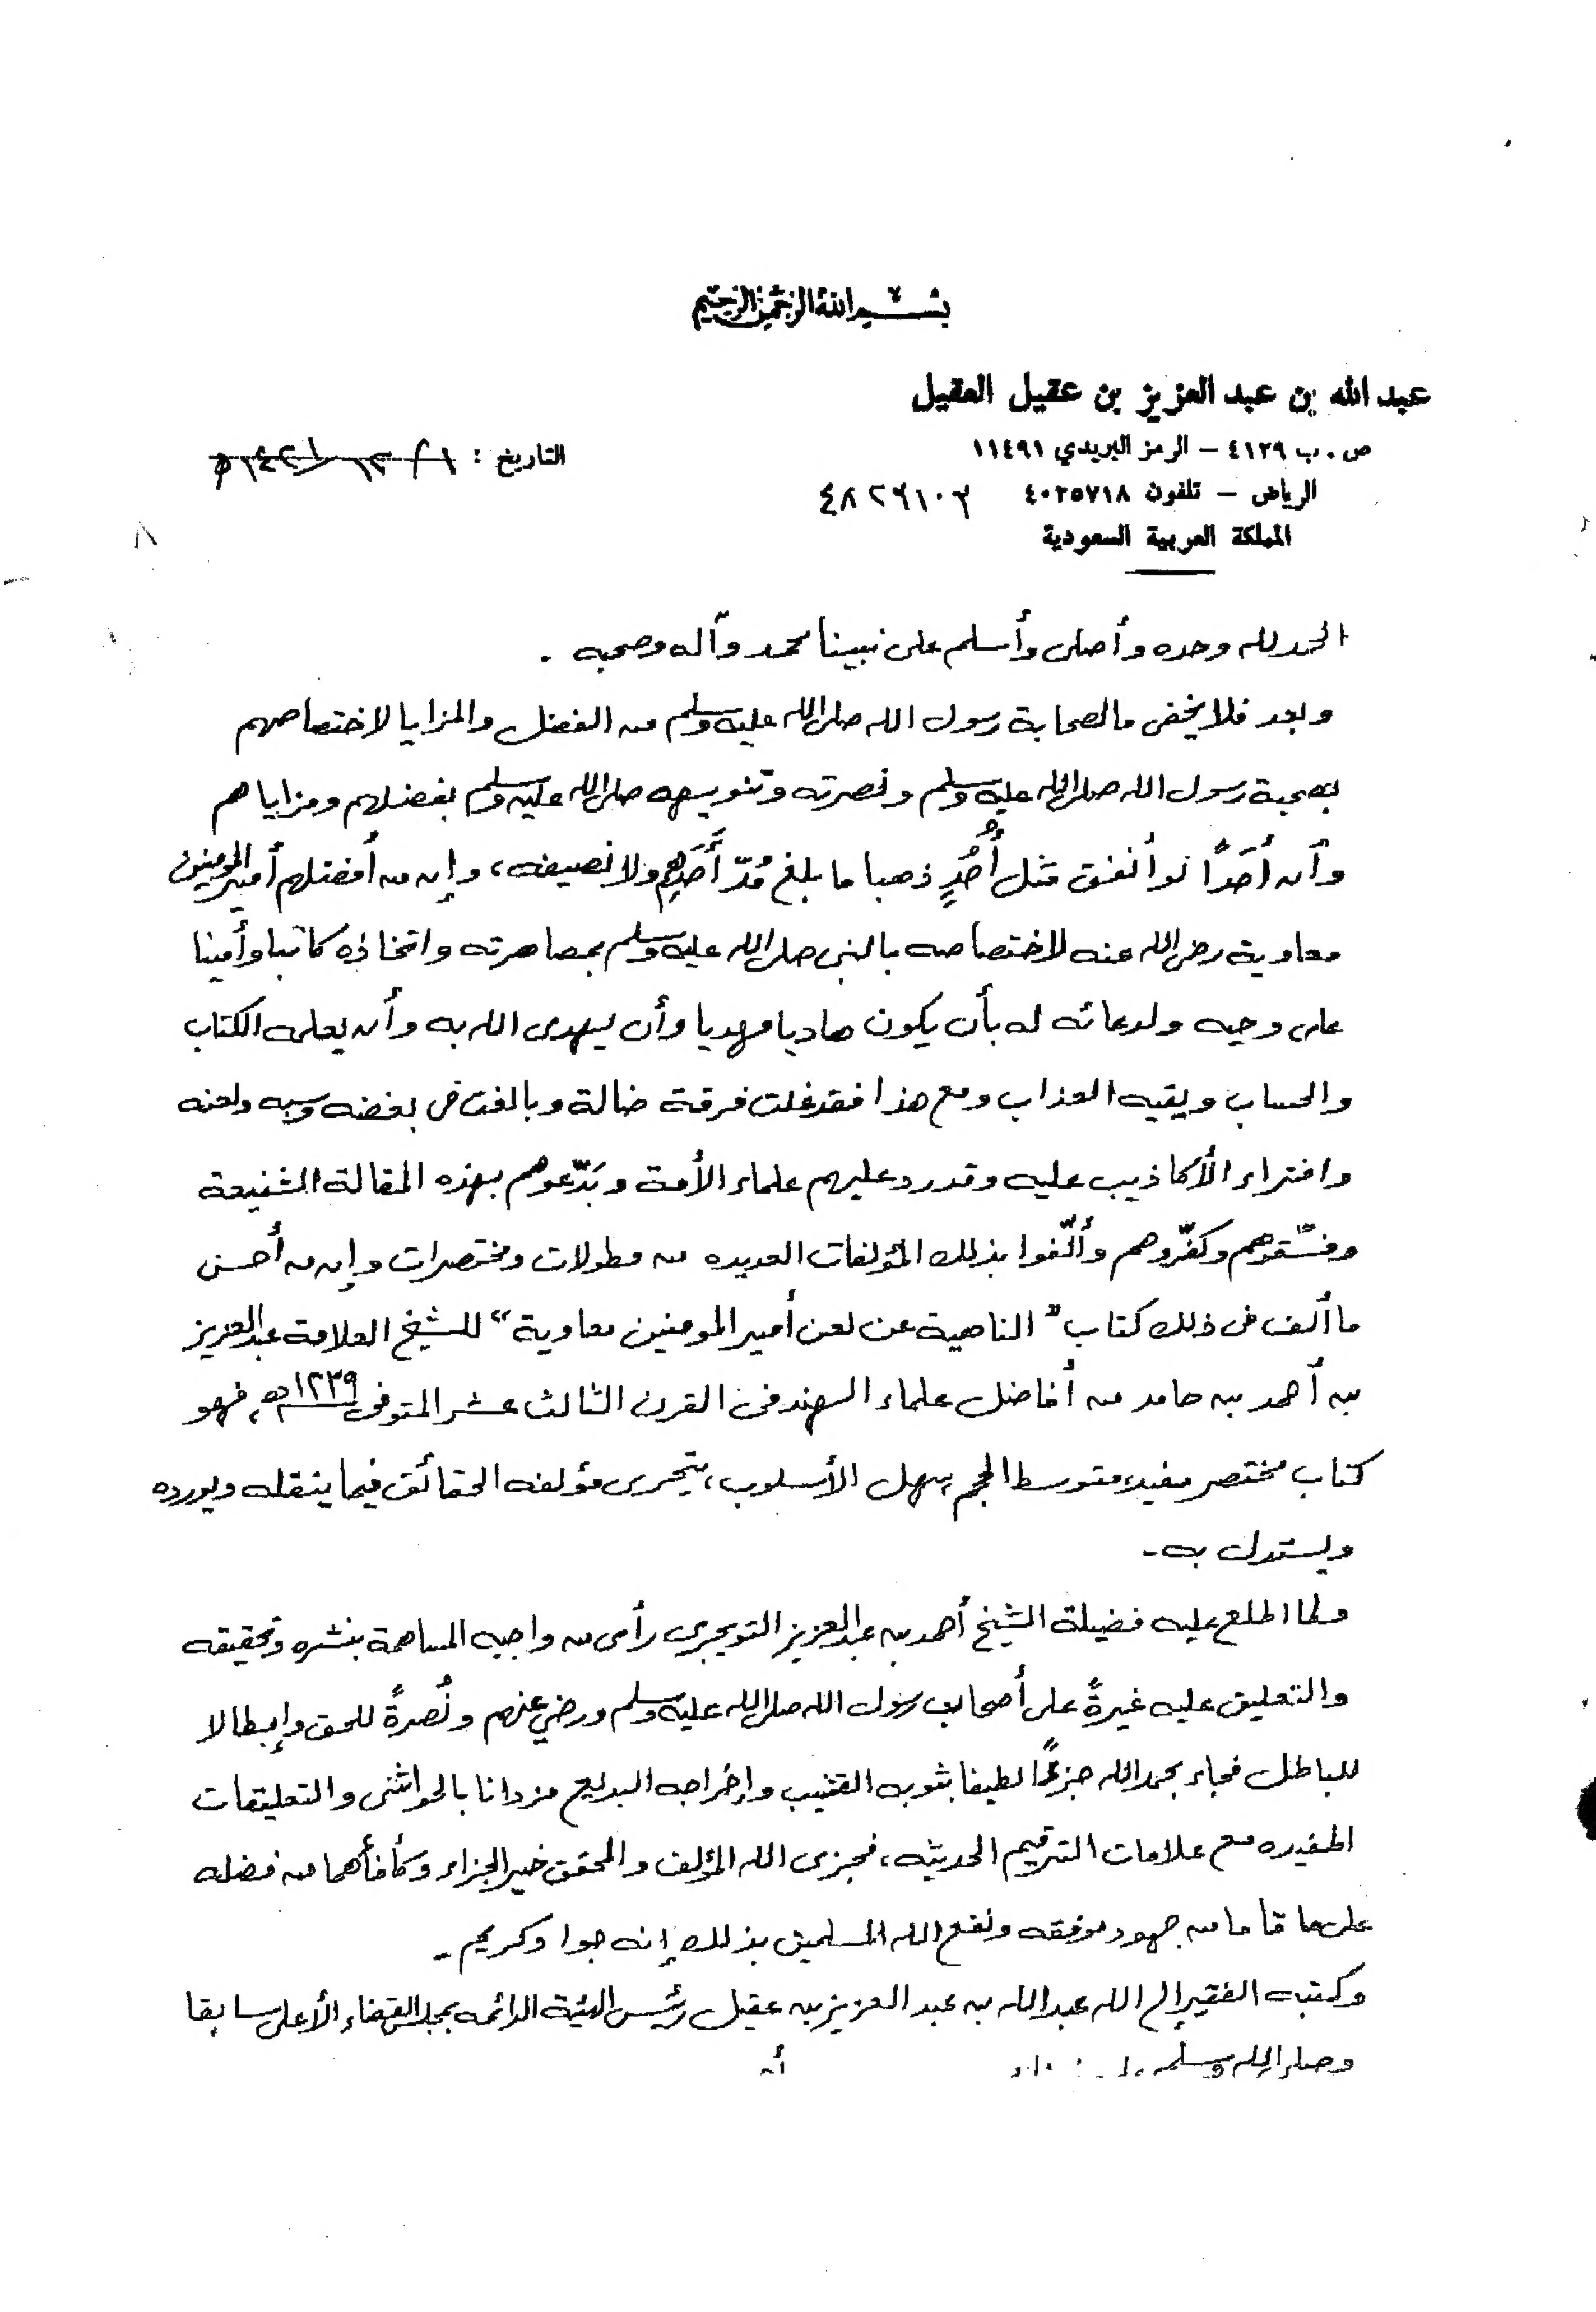 بسم الله الرحمن الرحيم
عبد الله بن عبد العزيز بن عقيل العقيل
ص . ب ٤١٢٩ – الرمز البريدي ١١٤٩١
التاريخ : ١٤٢١/١٢/٢١هـ
الرياض – تلفون ٤٠٢٥٧١٨ ٤٨٢٦١٠٢
المملكة العربية السعودية
الحمد لله وحده وأصلى وأسلم على نبينا محمد وآله وصحبه .
وبعد فلا يخفى ما لصحابة رسول الله صلى الله عليه وسلم من الفضل والمزايا لاختصاصهم
بصحبة رسول الله صلى الله عليه وسلم ونصرته وتنويهه صلى الله عليه وسلم بفضلهم ومزاياهم
وأن أحَدًا لو أنفق مثل أُحُدٍ ذهبا ما بلغ مُدّ أَحَدِهِم ولا نصيفه، وإن من أفضلهم أمير المؤمنين
معاوية رضى الله عنه لاختصاصه بالنبى صلى الله عليه وسلم بمصاهرته واتخاذه كاتبا وأمينا
على وحيه ولدعائه له بأن يكون هاديا مهديا وأن يهدى الله به وأن يعلمه الكتاب
والحساب ويقيه العذاب ومع هذا فقد غلت فرقة ضالة وبالغت فى بغضه وسبه ولعنه
وافتراء الأكاذيب عليه وقد رد عليهم علماء الأمة وبَدّعوهم بهذه المقالة الشنيعة
وفسّقوهم وكفّروهم وألّفوا بذلك المؤلفات العديده من مطولات ومختصرات وإن من أحسن
ما ألف فى ذلك كتاب "الناهية عن لعن أمير المومنين معاوية" للشيخ العلامة عبد العزيز
بن أحمد بن حامد من أفاضل علماء الهند فى القرن الثالث عشر المتوفى ١٢٣٩هـ، فهو
كتاب مختصر مفيد، متوسط الحجم، سهل الأسلوب، يتحرى مؤلفه الحقائق فيما ينقله ويورده
ويستدل به -
ولما اطلع عليه فضيلة الشيخ أحمد بن عبد العزيز التويجرى رأى من واجبه المساهمة بنشره وتحقيقه
والتعليق عليه غيرةً على أصحاب رسول الله صلى الله عليه وسلم ورضي عنهم ونُصرةً للحق وإبطالا
للباطل فجاء بحمد الله جزءًا لطيفا بثوبه القشيب وإخراجه البديع مزدانا بالحواشى والتعليقات
المفيده مع علامات الترقيم الحديثه، فجزى الله المؤلف والمحقق خير الجزاء وكافأهما من فضله
على ما قاما من جهود موفقه ونفع الله المسلمين بذلك إنه جواد كريم -
وكتبه الفقير إلى الله عبد الله بن عبد العزيز بن عقيل رئيس الهيئة الدائمه بمجلس القضاء الأعلى سابقا
وصلى الله وسلم